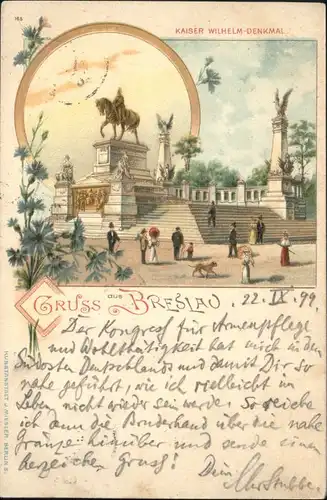 163
KAISER WILHELM-DENKMAL
GRUSS aus BRESLAU. 22. IX. 99.
Der Kongress für Armenpflege
und Wohltätigkeit hat mich in den
Südosten Deutschlands und damit Dir so
nahe geführt, wie ich vielleicht im
Leben nicht wieder sein werde. So reiche
ich denn die Bruderhand über die nahe
Gränze hinüber und sende einen
herzlichen Gruss! Dein
KUNSTANSTALT J. MIESLER, BERLIN S.